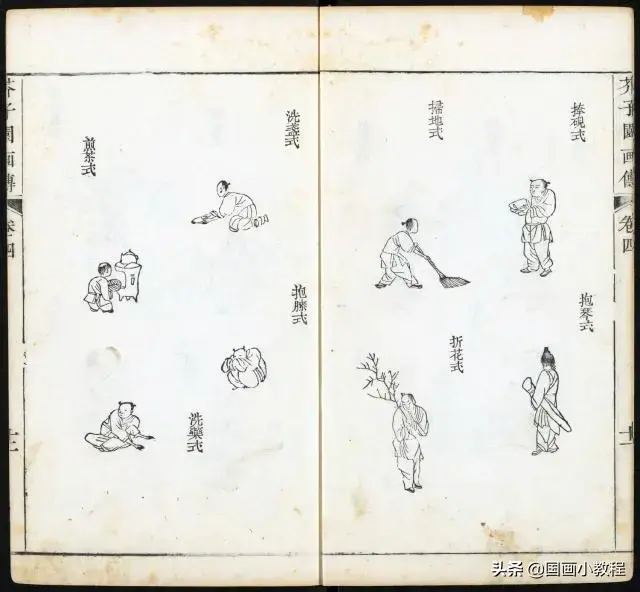 芥子園画傳
卷四
捧硯式
掃地式
抱琴式
折花式
洗盞式
煎茶式
抱膝式
洗藥式
芥子園画傳
卷四
头条 @国画小教程